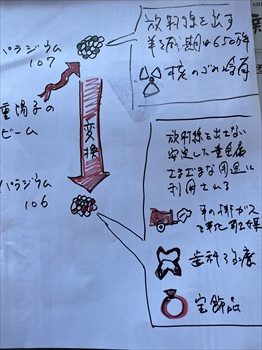 放射線を出す
半減期650万年
核のごみ含有
パラジウム
107
重陽子の
ビーム
変換
パラジウム
106
放射線を出さない
安定した重金属
さまざまな用途に
利用される
車の排ガス
浄化触媒
歯科治療
宝飾品